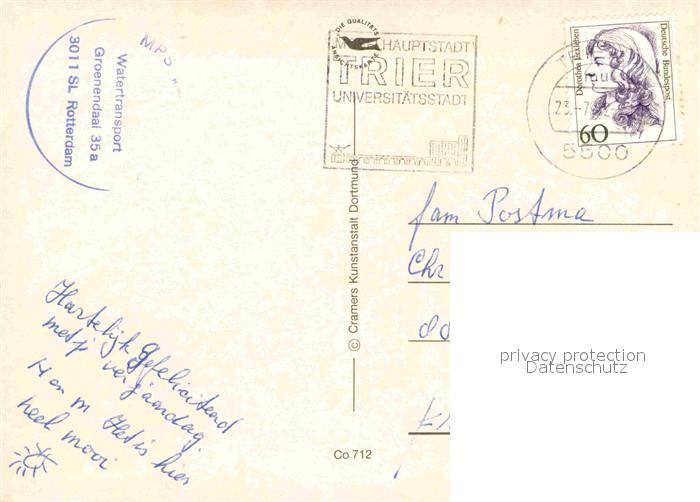 Watertransport
Groenendaal 35 a
3011 SL Rotterdam
DIE QUALITÄTS
ANSICHTSKARTE
HAUPTSTADT
TRIER
UNIVERSITÄTSSTADT
23.-7.
5500
Deutsche Bundespost
Dorothea Erxleben
60
fam Postma
Chr
© Cramers Kunstanstalt Dortmund
Hartelijk gefeliciteerd
met je verjaardag.
H en M Het is hier
heel mooi
Co 712
privacy protection
Datenschutz